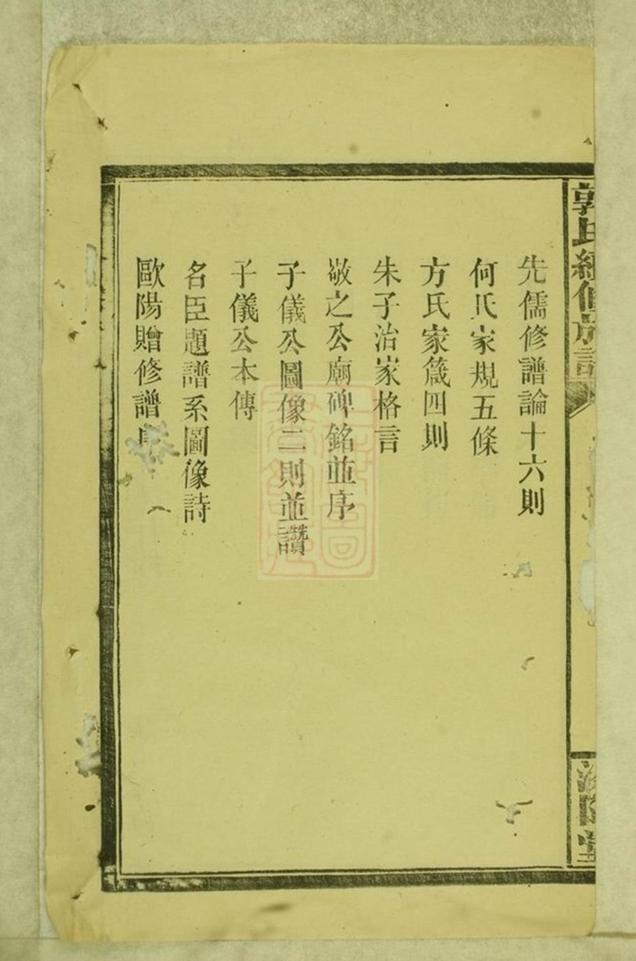 郭氏續修族譜
汾陽堂
先儒修譜論十六則
何氏家規五條
方氏家箴四則
朱子治家格言
敬之公廟碑銘並序
子儀公圖像二則並讚
子儀公本傳
名臣題譜系圖像詩
歐陽贈修譜